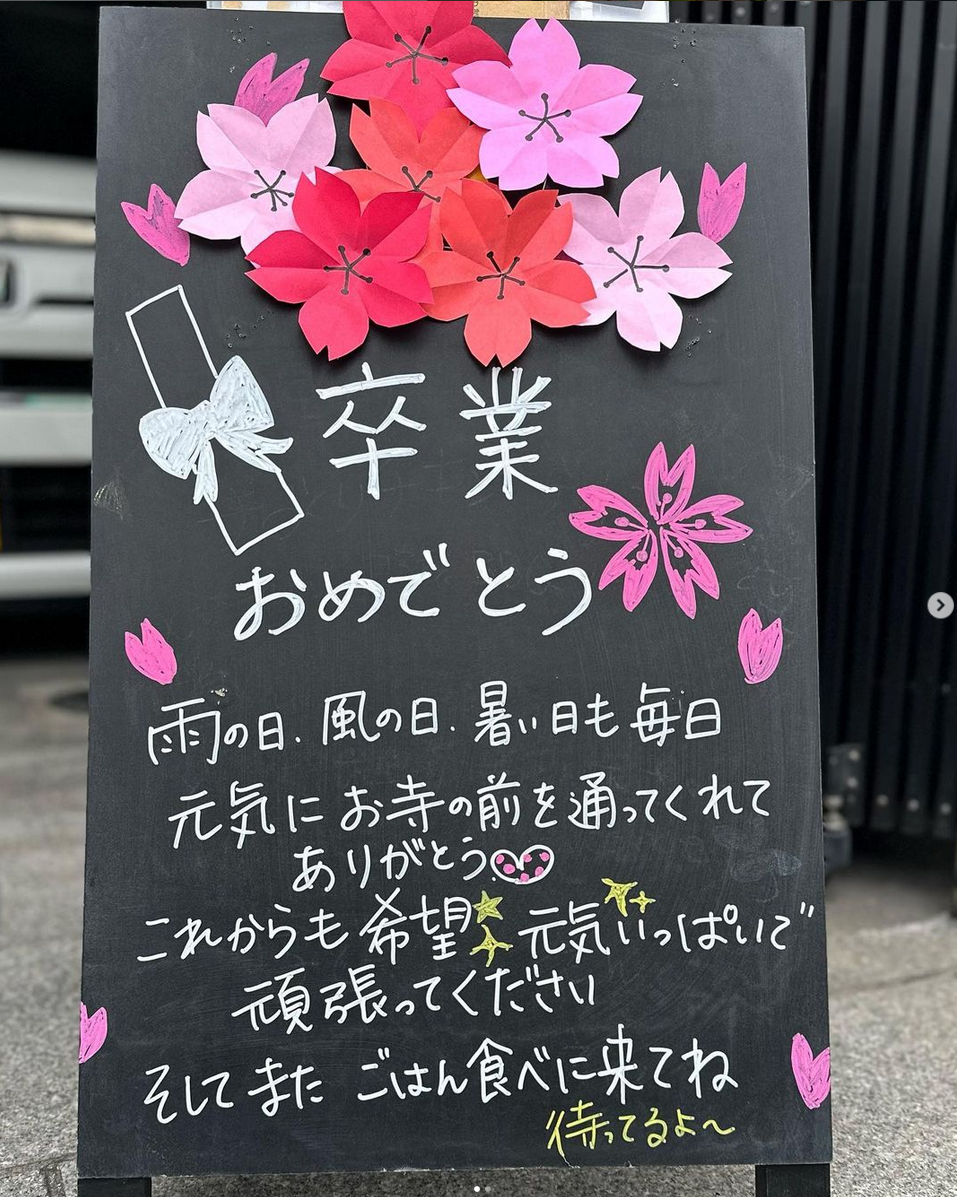 卒業
おめでとう
雨の日、風の日、暑い日も毎日
元気にお寺の前を通ってくれて
ありがとう
これからも希望元気いっぱいで
頑張ってください
そしてまた ごはん食べに来てね
待ってるよ〜